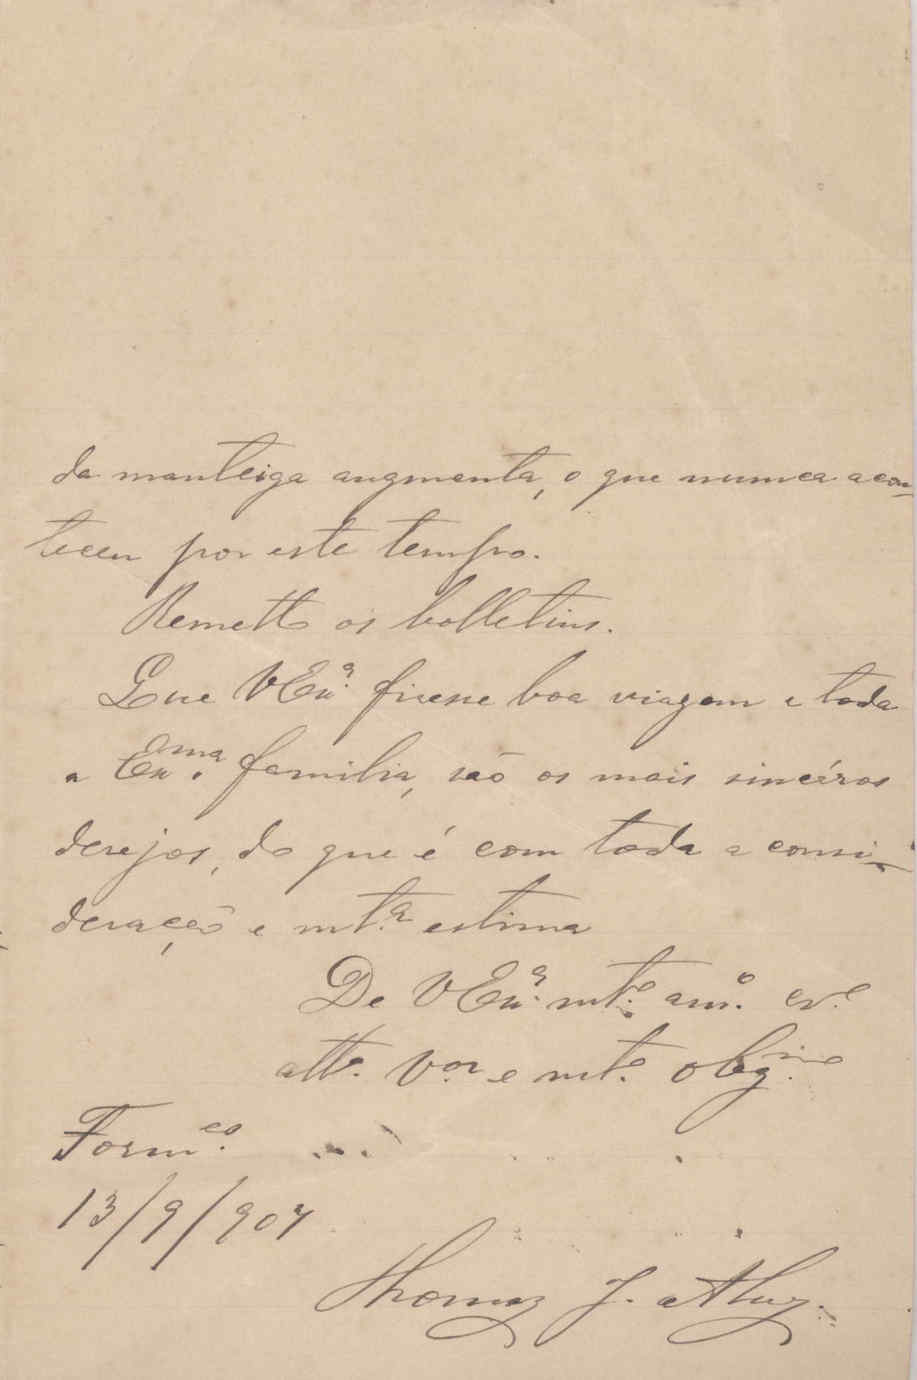 da manteiga augmenta, o que nunca acon-
teceu por este tempo.
Remetto os bolletins.
Que VExª. fizesse boa viagem e toda
a Exma. familia, são os mais sincéros
desejos, do que é com toda a consi-
deração e mtª. estima
De VExª. mto. amº. cro.
atto. Vor. e mto. obgmo
Formos.
13/9/907
Thomaz J.